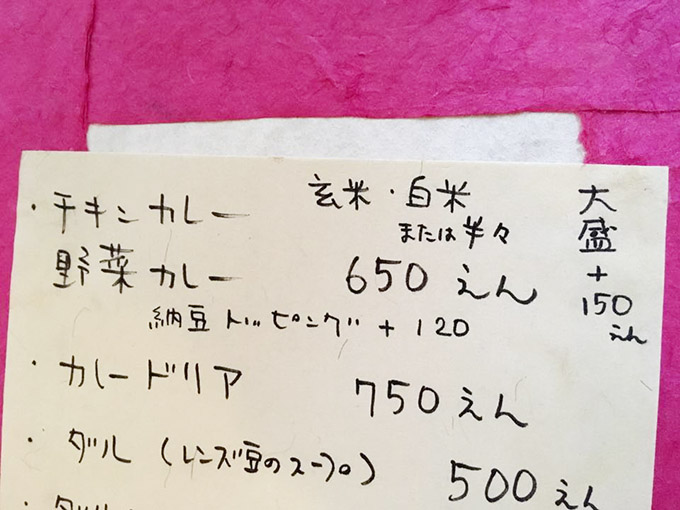 ・チキンカレー 玄米・白米
または半々
野菜カレー 650えん
納豆トッピング+120
大盛+150えん
・カレードリア 750えん
・ダル(レンズ豆のスープ) 500えん